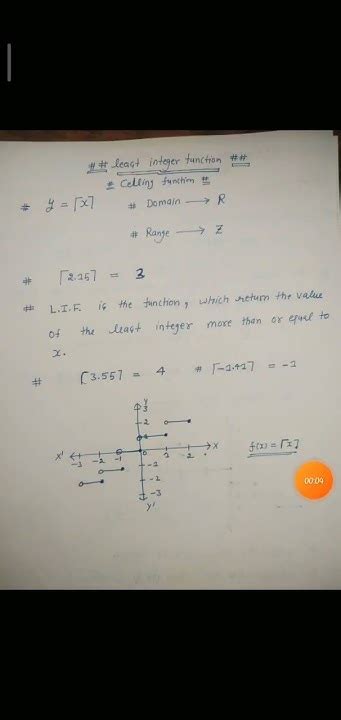 ## least integer function ##
# Ceiling function #
# y = ⌈x⌉ # Domain → R
# Range → Z
# ⌈2.15⌉ = 3
# L.I.F. is the function, which return the value
of the least integer more than or equal to
x.
# ⌈3.55⌉ = 4 # ⌈-1.42⌉ = -1
y
3
2
1
X' -3 -2 -1 0 1 2 X
f(x) = ⌈x⌉
-1
-2
-3
y'
00:04